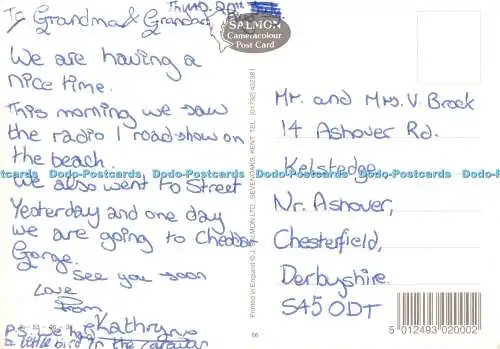 To Grandma & Grandad
Thurs. 2pm
We are having a
nice time.
This morning we saw
the radio 1 roadshow on
the beach.
We also went to Street
Yesterday and one day
we are going to Cheddar
Gorge.
See you soon
Love
from
Kathryn
P.S. We had
a little bird in the
SALMON
Cameracolour
Post Card
Printed in England © J. SALMON LTD., SEVENOAKS, KENT. TEL. (01732) 452381
Mr. and Mrs. V. Brock
14 Ashover Rd.
Kelstedge
Nr. Ashover,
Chesterfield,
Derbyshire.
S45 0DT
5 012493 020002
Dodo-Postcards Dodo-Postcards Dodo-Postcards Dodo-Postcards Dodo-Postcards